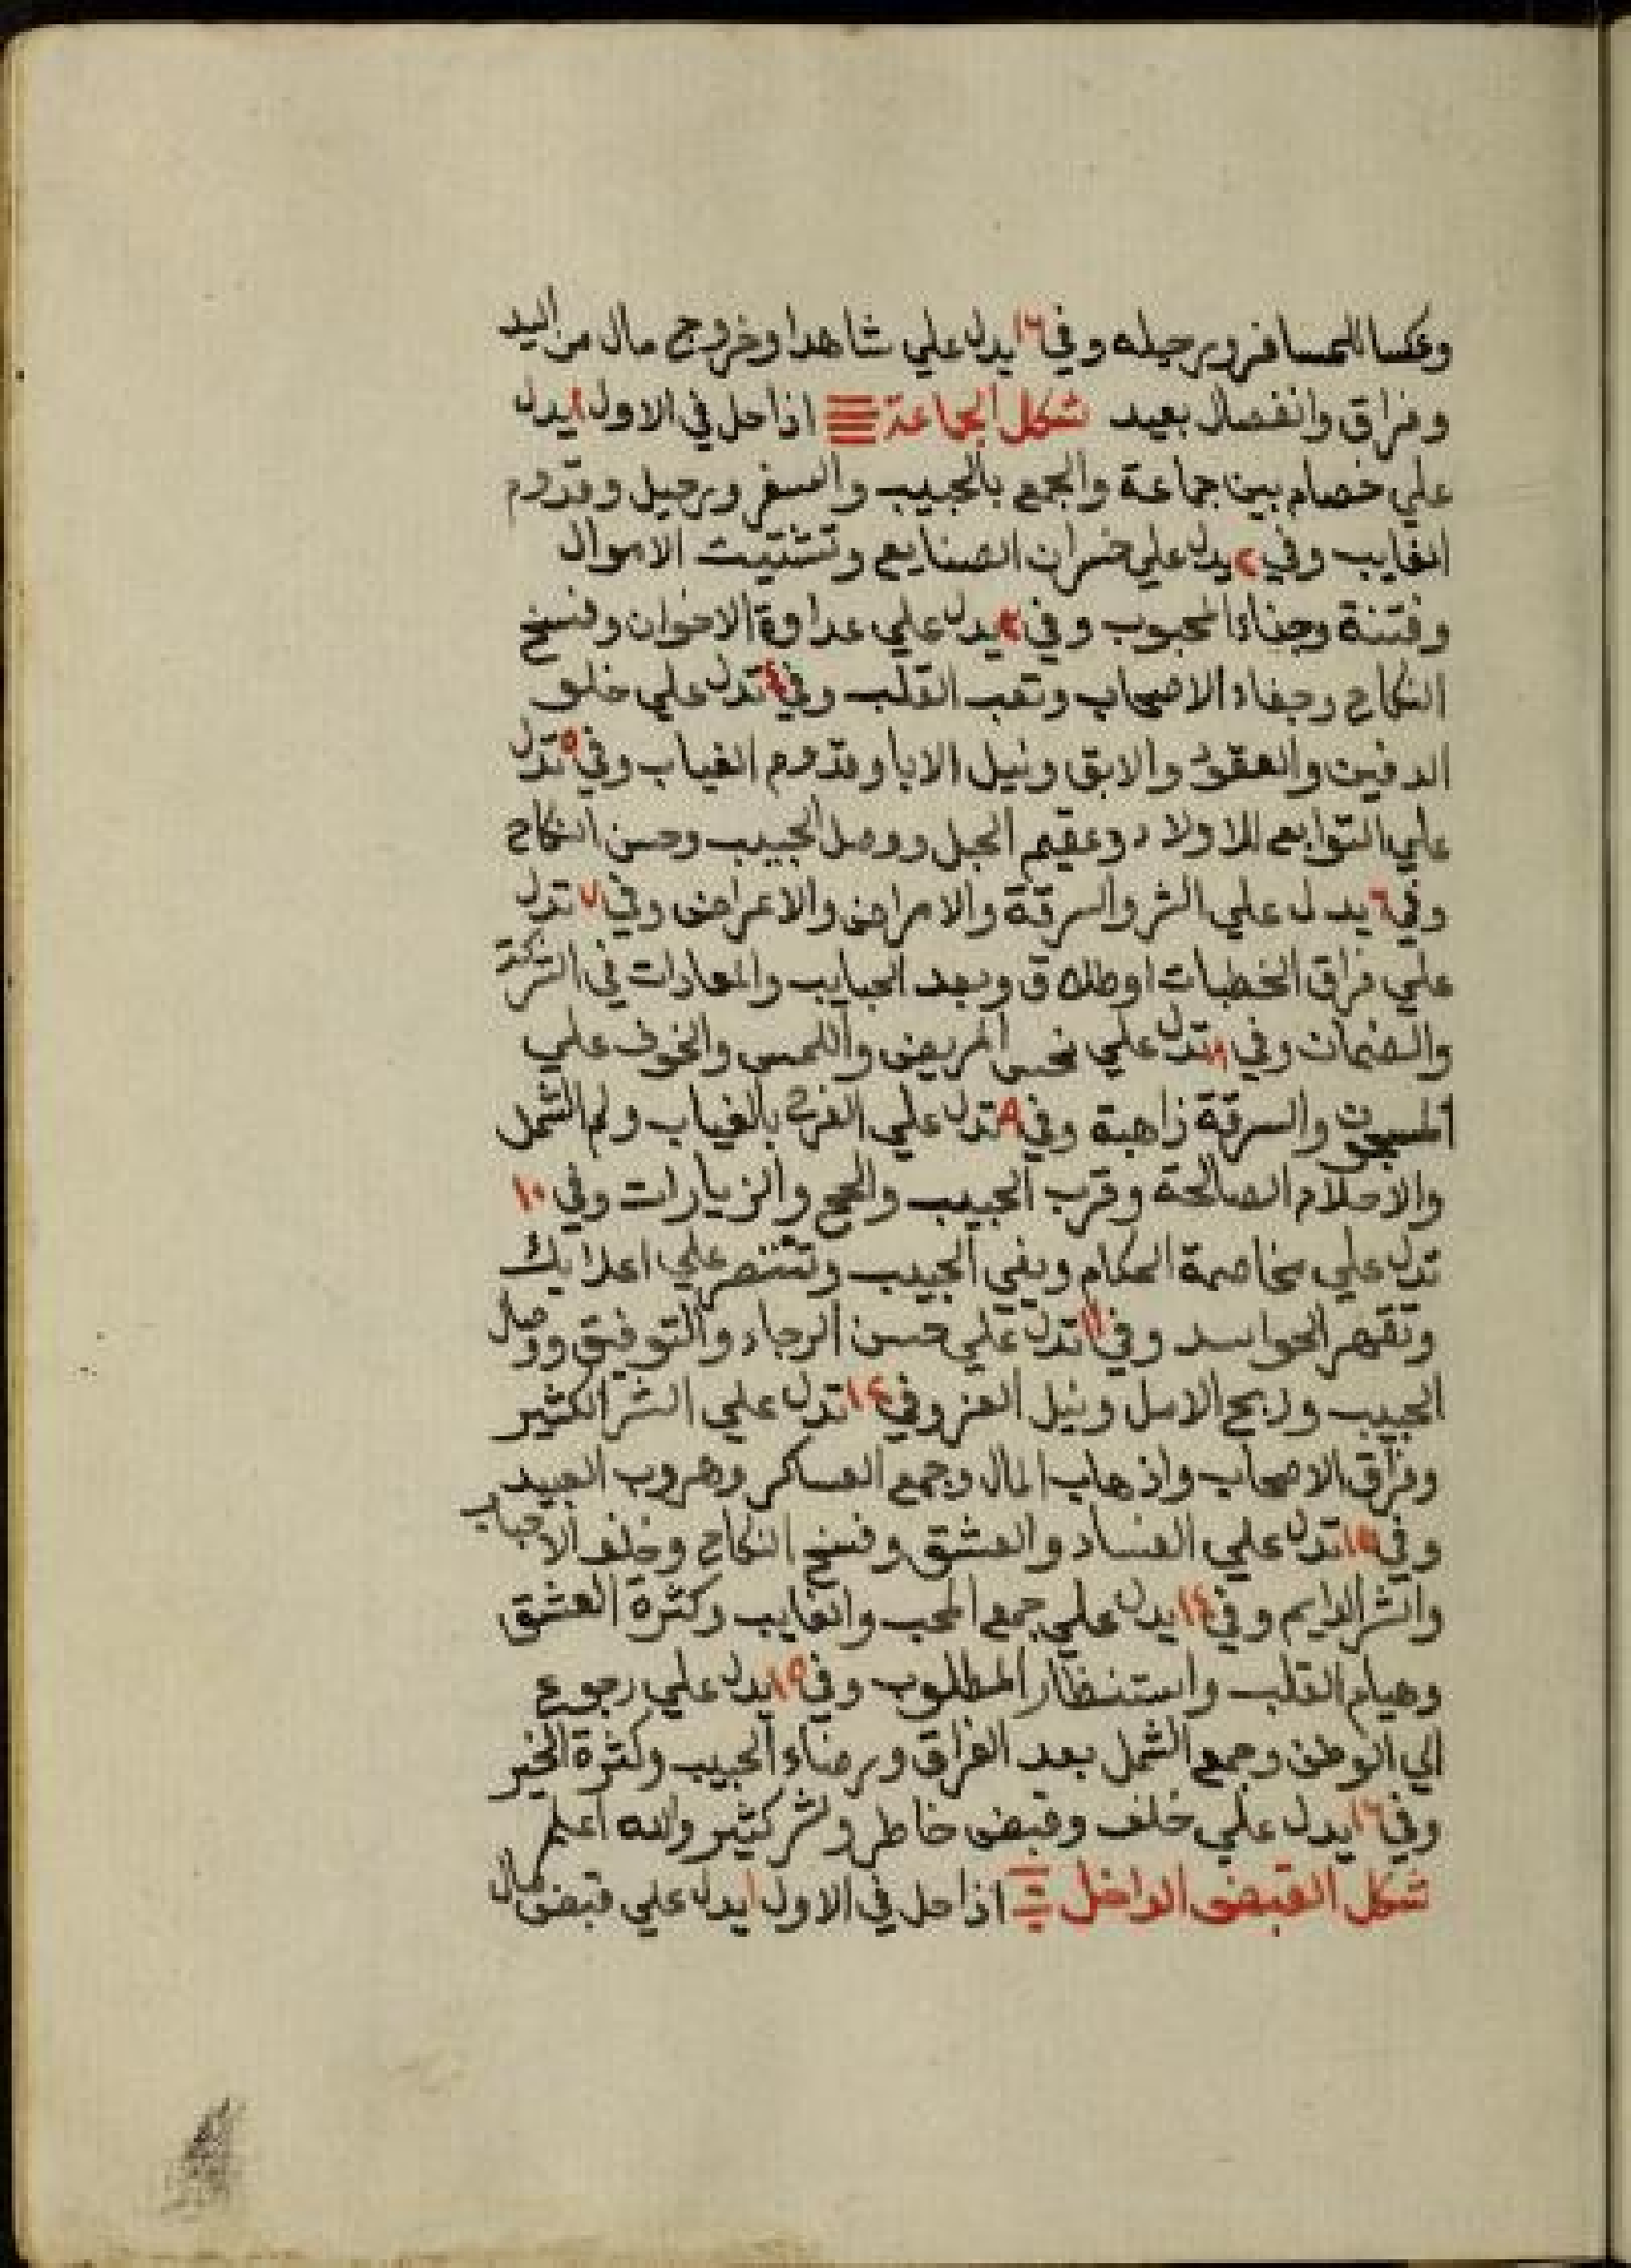 وعكسا للمسافر ورحيله وفي ١٦ يدل علي شاهدا وخروج مال من اليد
وفراق وانفصال بعيد شكل الجماعة اذا حل في الاول ١ يدل
علي خصام بين جماعة والجمع بالحبيب والسفر ورحيل وقدوم
الغايب وفي ٢ يدل علي خسران الصنايع وتشتيت الاموال
وفتنة وجفاء المحبوب وفي ٣ يدل علي عداوة الاخوان وفسخ
النكاح وجفاء الاصحاب وتعب القلب وفي ٤ تدل علي خلو
الدفين والعقود والابق ونيل الابا وقدوم الغياب وفي ٥ تدل
علي التوابع للاولاد وعقيم الحبل ووصل الحبيب وحسن النكاح
وفي ٦ يدل علي الشر والسرقة والامراض والاعراض وفي ٧ تدل
علي فراق الخطبات او طلاق وبعد الحبايب والمعادات في الشركة
والضمان وفي ٨ تدل علي نحس المريض واللمس والخوف علي
المسجون والسرقة زاهبة وفي ٩ تدل علي الفرح بالغياب ولم الشمل
والاحلام الصالحة وقرب الحبيب والحج والزيارات وفي ١٠
تدل علي مخاصمة الحكام وبغي الحبيب وتنتصر علي اعدايك
وتقهر الحواسد وفي ١١ تدل علي حسن الرجاء والتوفيق ووصال
الحبيب وربح الامل ونيل العز وفي ١٢ تدل علي الشر الكثير
وفراق الاصحاب واذهاب المال وجمع العساكر وهروب العبيد
وفي ١٣ تدل علي الفساد والعشق وفسخ النكاح وخلف الاحباب
والشر الدايم وفي ١٤ يدل علي جمع المحب والغايب وكثرة العشق
وهيام القلب واستنظار المطلوب وفي ١٥ يدل علي رجوع
الي الوطن وجمع الشمل بعد الفراق ورضاء الحبيب وكثرة الخير
وفي ١٦ يدل علي خلف وقبض خاطر وشر كثير والله اعلم
شكل القبض الداخل اذا حل في الاول ١ يدل علي قبض مال